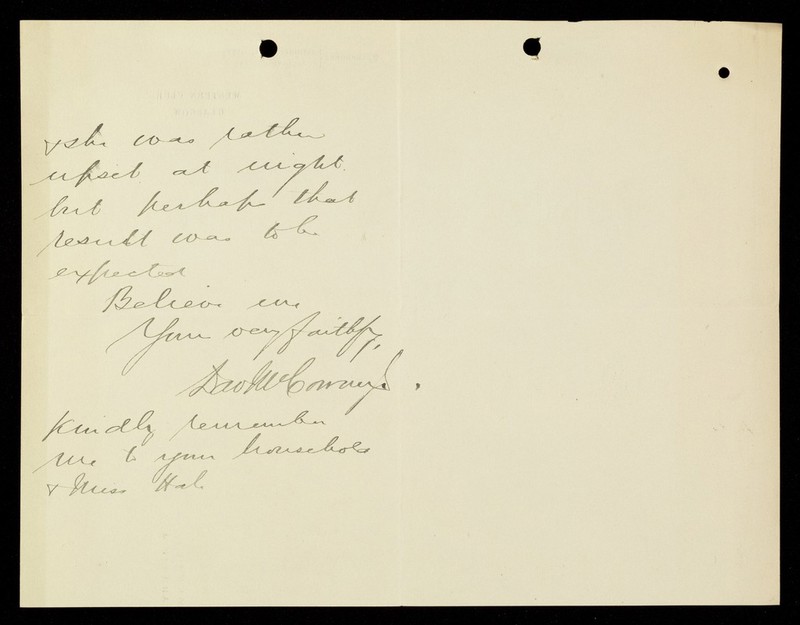 & she was rather
upset at night.
but perhaps that
result was to be
expected
Believe me
Your very faithfy,
Kindly remember
me to your household
& Miss